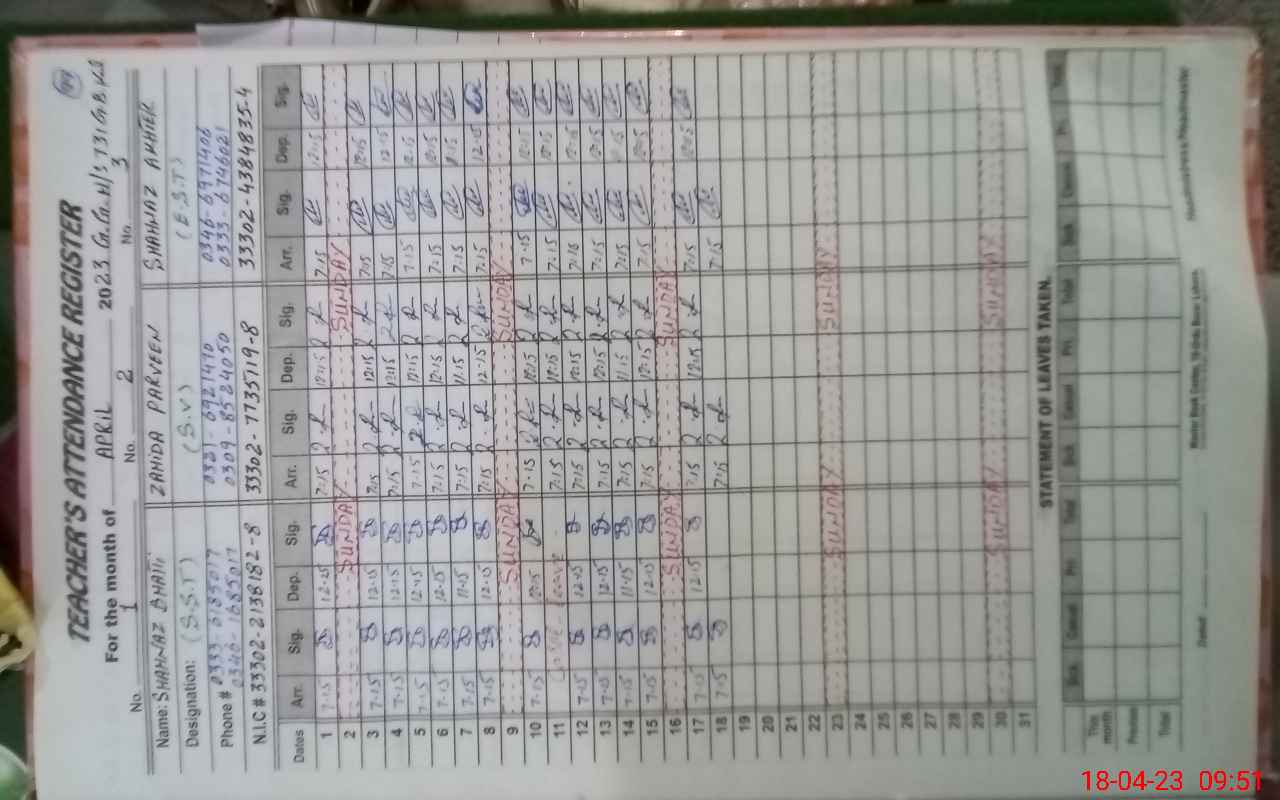 TEACHER'S ATTENDANCE REGISTER
For the month of APRIL 2023
No. 1 No. 2 No. 3
Name: SHAHNAZ BHATTI ZAHIDA PARVEEN SHAHNAZ AKHTER
Designation: (S.S.T) (S.V) (E.S.T)
Phone # 0333-6185017 0321-6921470 0346-6971406
0340-1685017 0309-8524050 0333-6746621
N.I.C # 33302-2138182-8 33302-7735719-8 33302-4384835-4
Dates Arr. Sig. Dep. Sig. Arr. Sig. Dep. Sig. Arr. Sig. Dep. Sig.
1 7.15 12.15 7.15 12.15 7.15 12.15
2 SUNDAY SUNDAY
3 7.15 12.15 7.15 12.15 7.15 12.15
4 7.15 12.15 7.15 12.15 7.15 12.15
5 7.15 12.15 7.15 12.15 7.15 12.15
6 7.15 12.15 7.15 12.15 7.15 12.15
7 7.15 11.15 7.15 11.15 7.15 11.15
8 7.15 12.15 7.15 12.15 7.15 12.15
9 SUNDAY SUNDAY
10 7.15 12.15 7.15 12.15 7.15 12.15
11 7.15 12.15 7.15 12.15
12 7.15 12.15 7.15 12.15 7.15 12.15
13 7.15 12.15 7.15 12.15 7.15 12.15
14 7.15 11.15 7.15 11.15 7.15 11.15
15 7.15 12.15 7.15 12.15 7.15 12.15
16 SUNDAY SUNDAY
17 7.15 12.15 7.15 12.15 7.15 12.15
18 7.15 7.15 7.15
19
20
21
22
23 SUNDAY SUNDAY
24
25
26
27
28
29
30 SUNDAY SUNDAY
31
STATEMENT OF LEAVES TAKEN.
Sick Casual Pri. Total Sick Casual Pri. Total Sick Casual Pri. Total
This month
Previous
Total
18-04-23 09:51